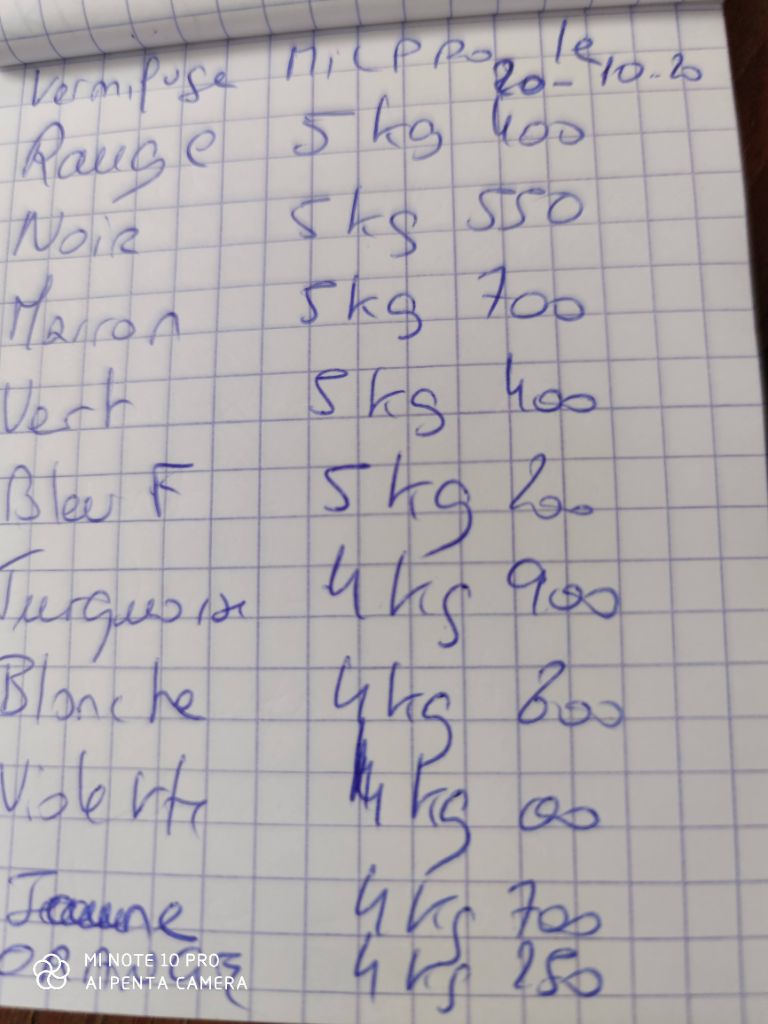 Vermifuge Milppo le
20-10-20
Rouge 5 kg 400
Noir 5 kg 550
Marron 5 kg 700
Vert 5 kg 400
Bleu F 5 kg 200
Turquoise 4 kg 900
Blanche 4 kg 800
Violette 4 kg 00
Jaune 4 kg 700
4 kg 250
MI NOTE 10 PRO
AI PENTA CAMERA